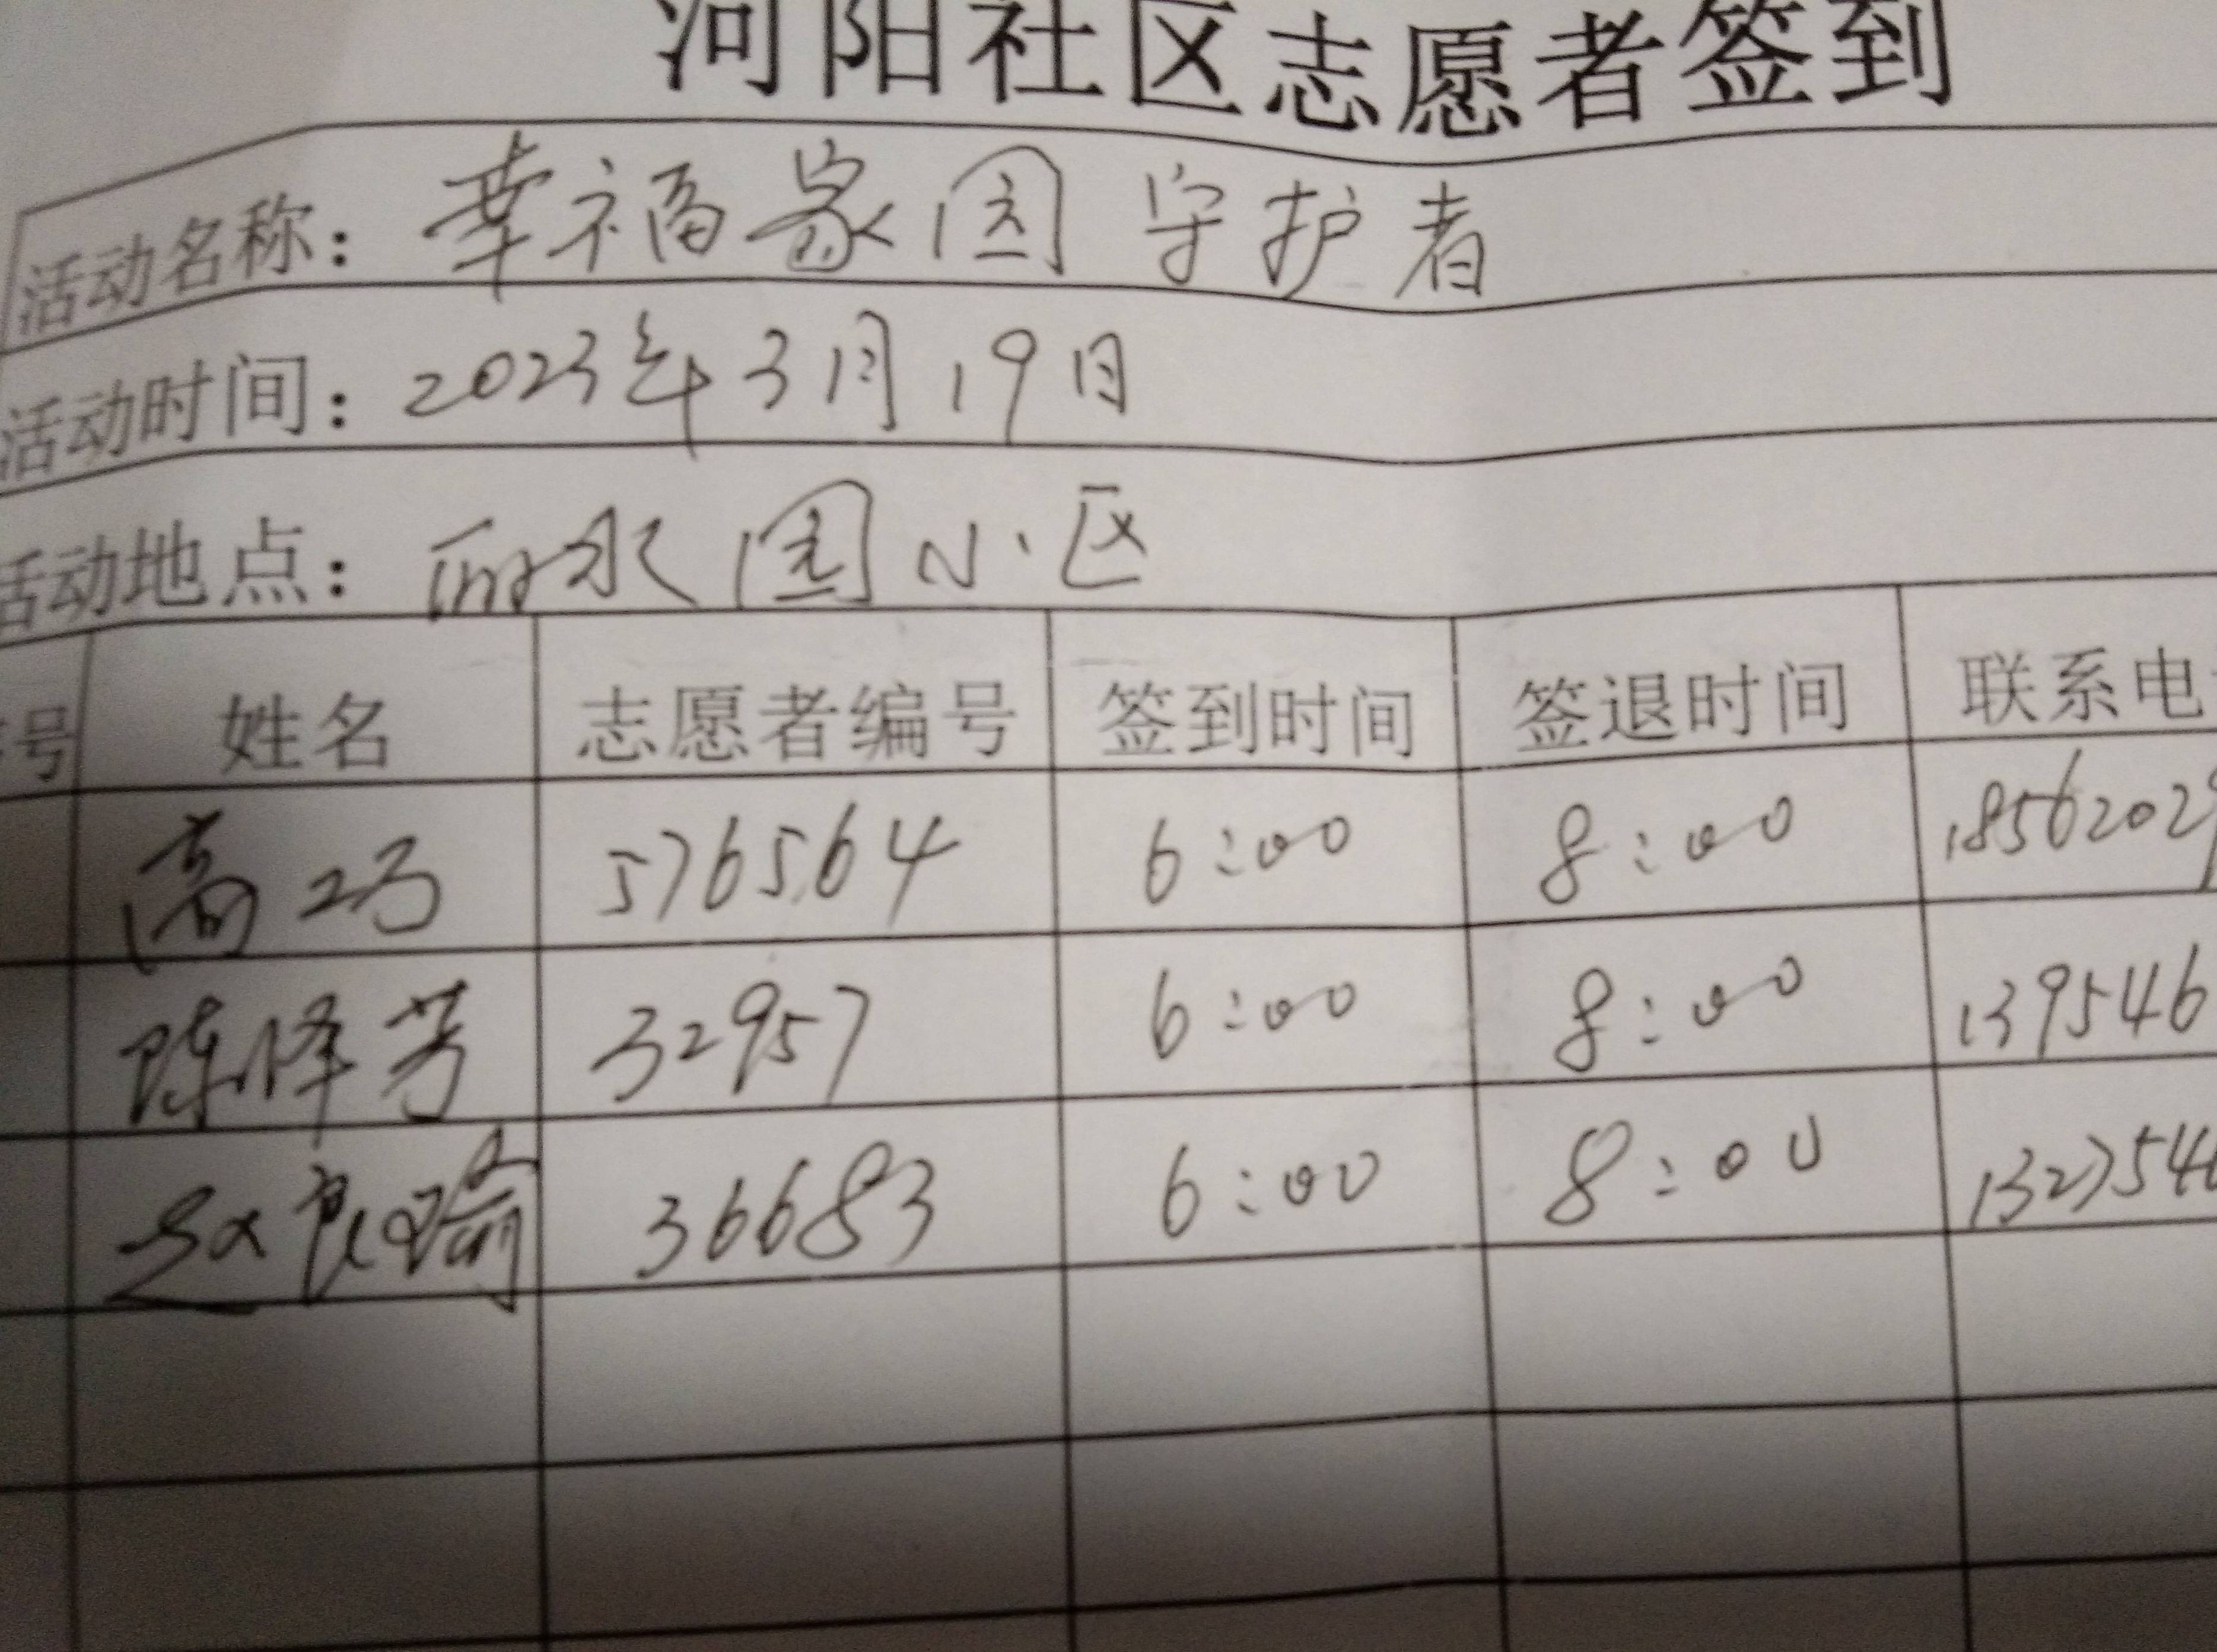 河阳社区志愿者签到
活动名称：幸福家园守护者
活动时间：2023年3月19日
活动地点：丽水园小区
号 姓名 志愿者编号 签到时间 签退时间 联系电
高 576564 6:00 8:00 1856202
陈泽芳 32957 6:00 8:00 139546
赵良瑜 36683 6:00 8:00 1327546